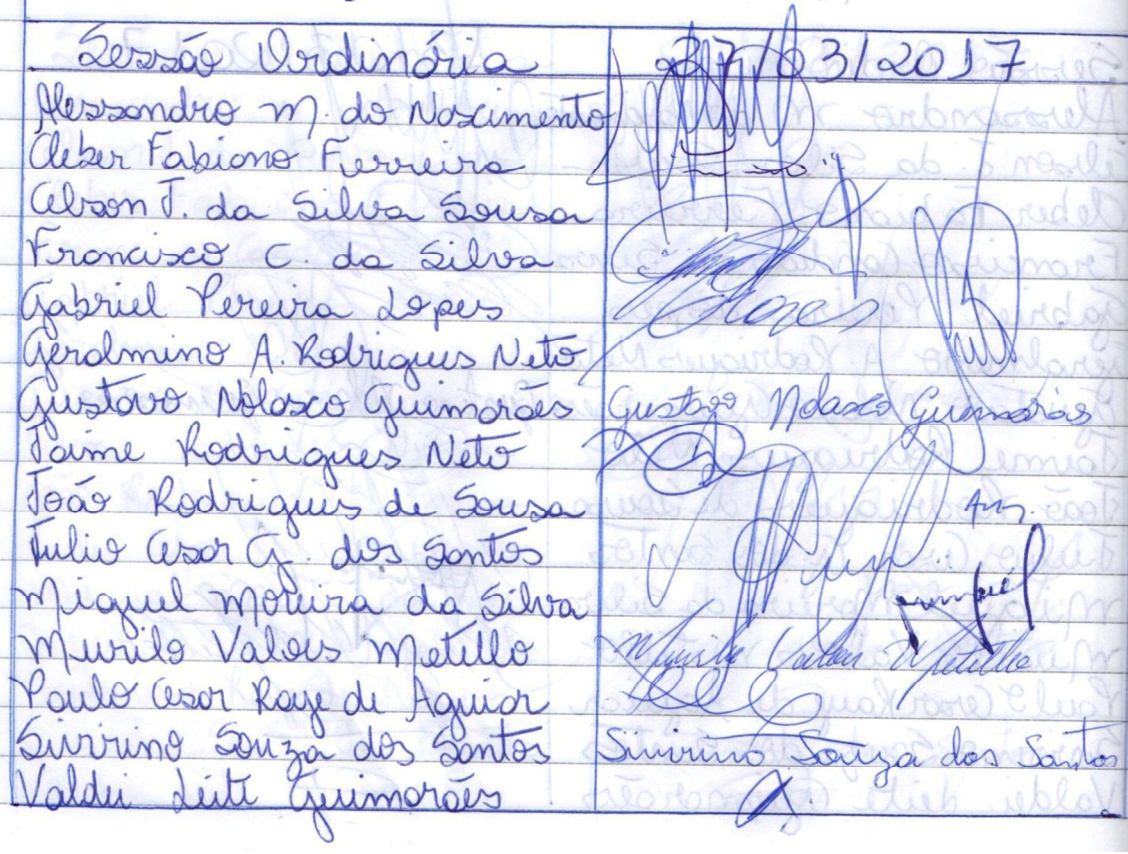 Sessão Ordinória 27/03/2017
Alessandro M. do Nascimento
Cleber Fabiano Ferreira
Celson J. da Silva Sousa
Francisco C. da Silva
Gabriel Pereira Lopes
Geralmino A. Rodrigues Neto
Gustavo Nolasco Guimarães Gustavo Nolasco Guimarães
Jaime Rodrigues Neto
João Rodrigues de Sousa
Julio Cesar G. dos Santos
Miguel Moreira da Silva
Murilo Valoes Metillo Murilo Valoes Metillo
Paulo Cesar Raye de Aguiar
Sivirino Souza dos Santos Sivirino Souza dos Santos
Valdei Leite Guimarães